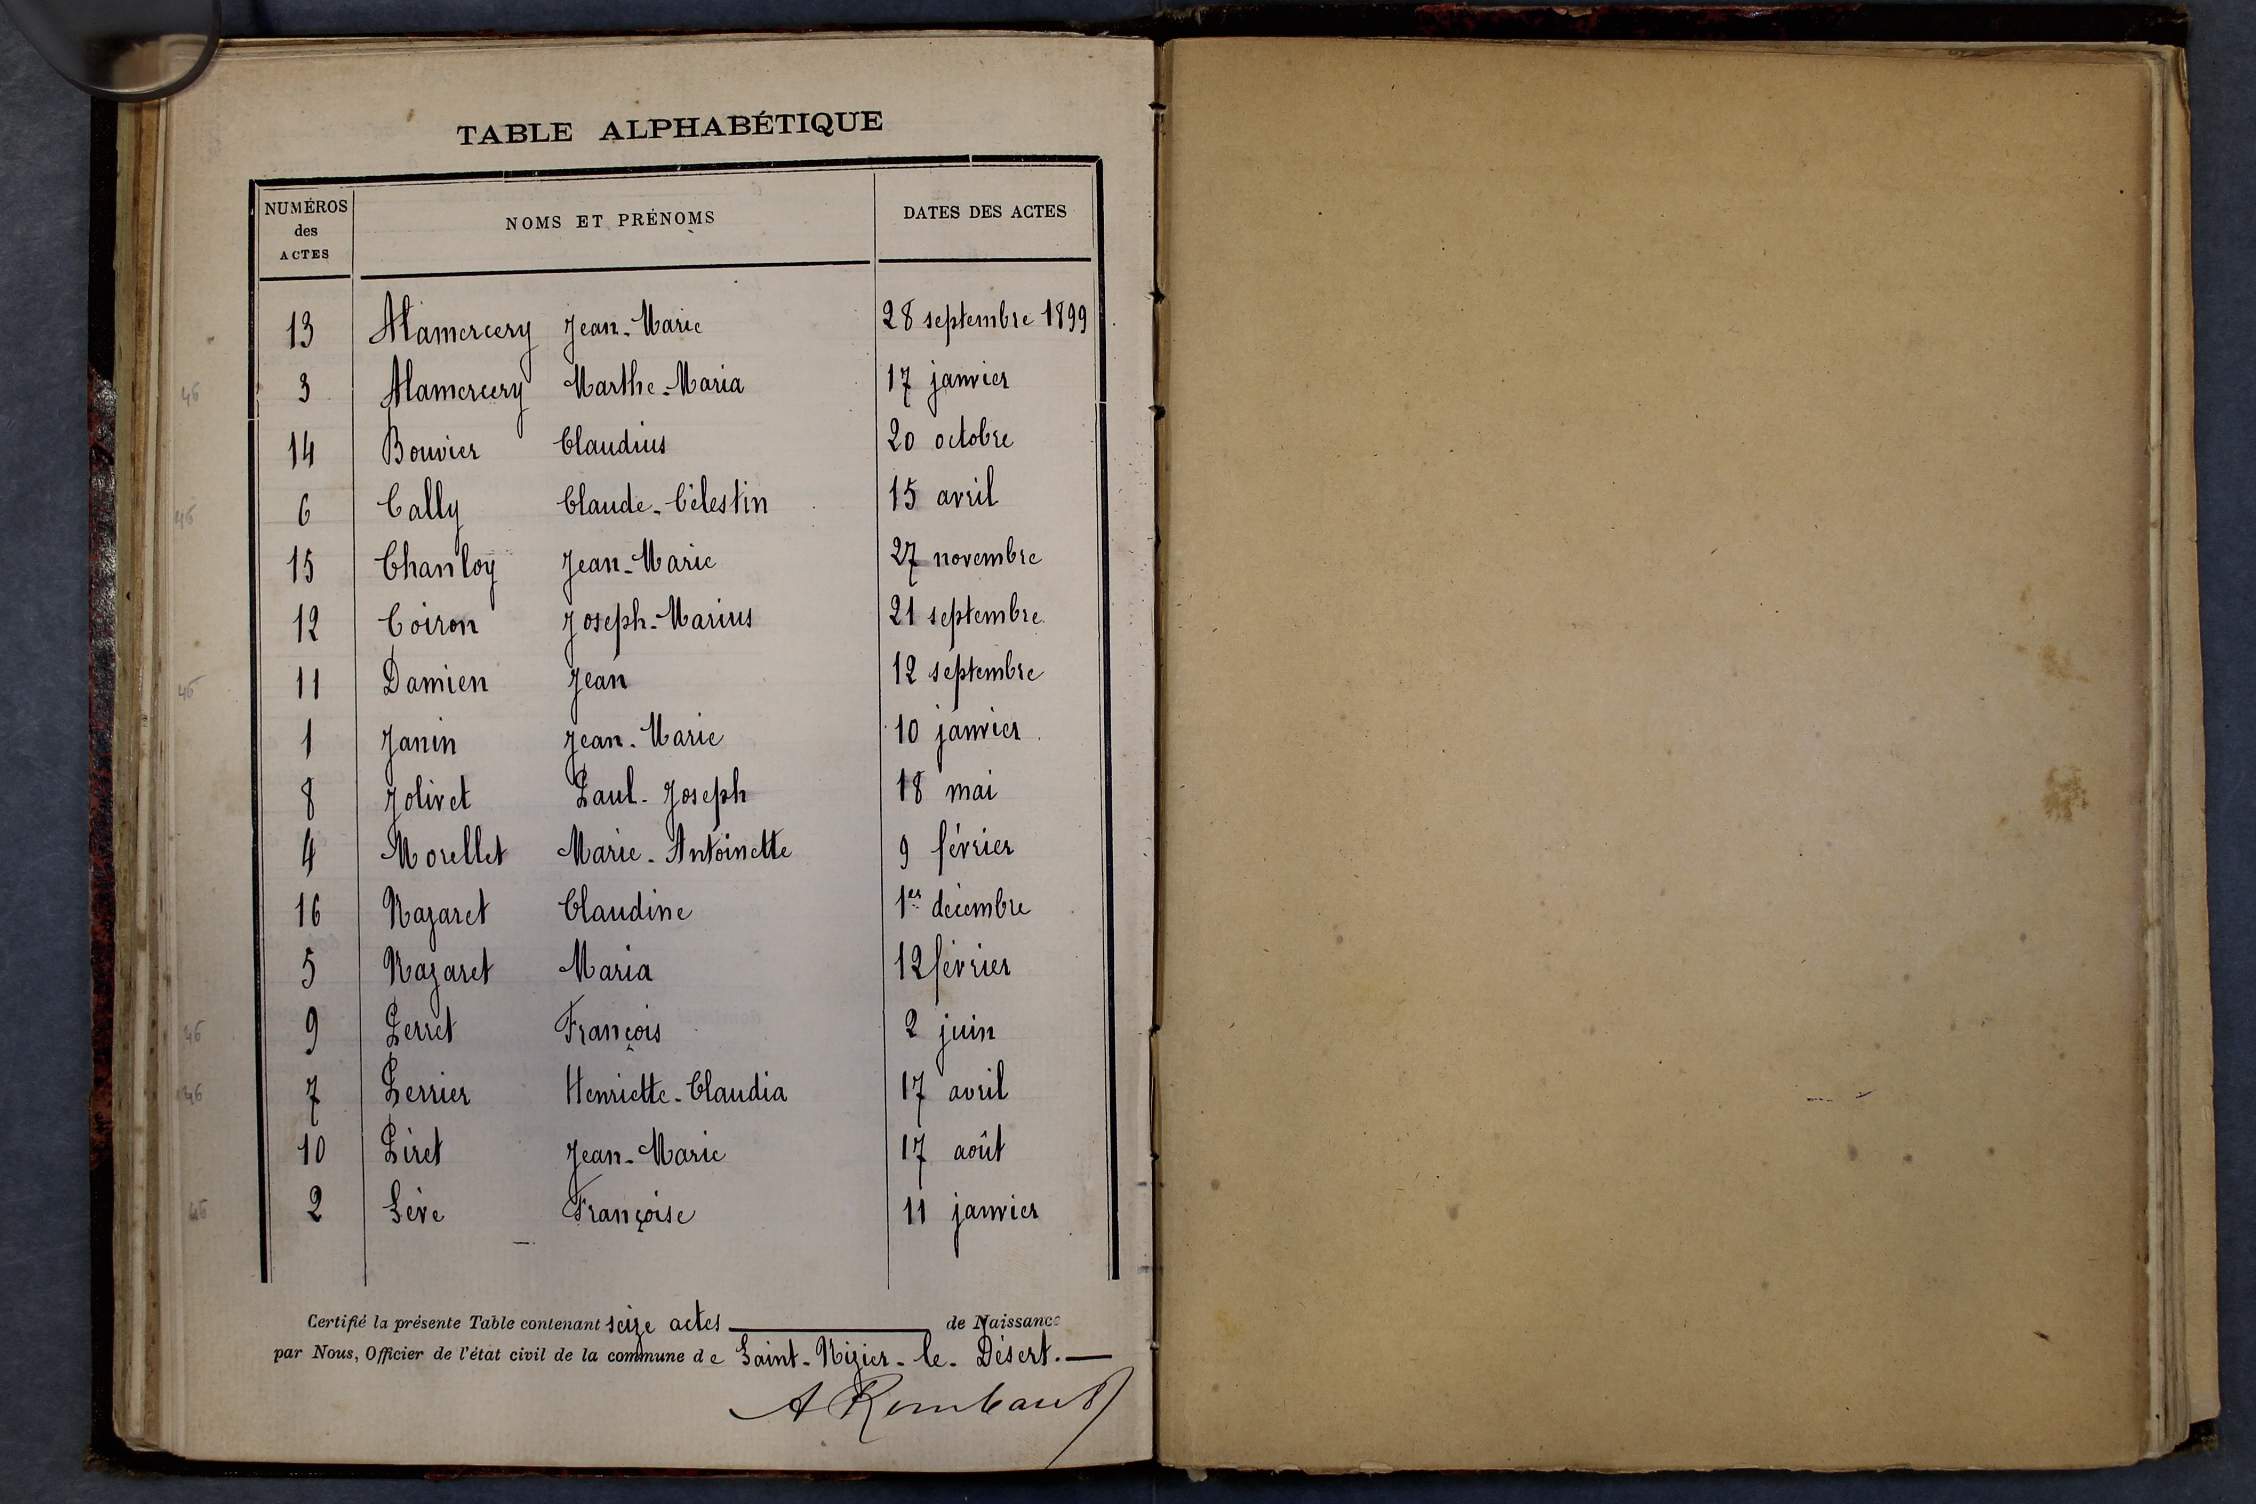 TABLE ALPHABÉTIQUE
NUMÉROS des ACTES NOMS ET PRÉNOMS DATES DES ACTES
13 Alamercery Jean-Marie 28 septembre 1899
46 3 Alamercery Marthe-Maria 17 janvier
14 Bouvier Claudius 20 octobre
46 6 Cally Claude-Célestin 15 avril
15 Chanloy Jean-Marie 27 novembre
12 Coiron Joseph-Marius 21 septembre
46 11 Damien Jean 12 septembre
1 Janin Jean-Marie 10 janvier
8 Jolivet Paul-Joseph 18 mai
4 Morellet Marie-Antoinette 9 février
16 Nazaret Claudine 1er décembre
5 Nazaret Maria 12 février
46 9 Perret François 2 juin
46 7 Perrier Henriette-Claudia 17 avril
10 Piret Jean-Marie 17 août
46 2 Sève Françoise 11 janvier
Certifié la présente Table contenant seize actes de Naissance
par Nous, Officier de l'état civil de la commune de Saint-Nizier-le-Désert.
A Rombaud